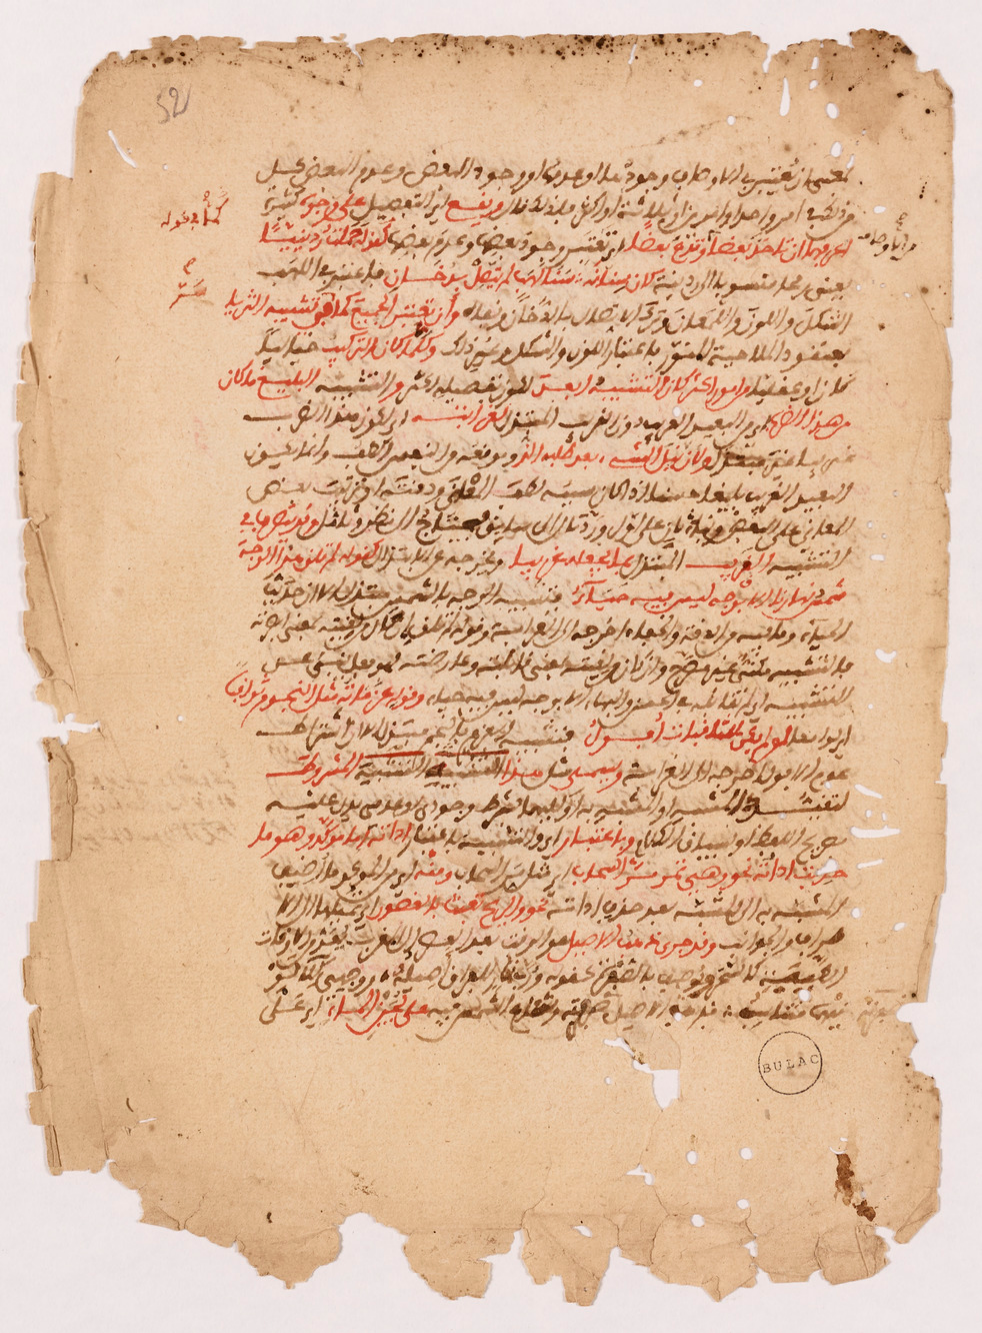 بمعنى ان تعتبر في الاوصاف وجودها او عدمها او وجود البعض وعدم البعض كل
من ذلك في امر واحد او امرين او ثلاثة او اكثر فلذا قال ويقع اي التفصيل على وجوه كثيرة
اعرفها ان تاخذ بعضا وتدع بعضا اي تعتبر وجود بعضها وعدم بعضها كقوله حملت ردينيا
يعني رمحا منسوبا الى ردينة كان سنانه سنا لهب لم يتصل بدخان فاعتبر في اللهب
الشكل واللون واللمعان وترك الاتصال بالدخان ونفاه وان تعتبر الجميع كما في تشبيه الثريا
بعنقود الملاحية المنور باعتبار اللون والشكل وغير ذلك وكلما كان التركيب خياليا
كان او عقليا من امور اكثر كان التشبيه ابعد لكون تفصيله اكثر والتشبيه البليغ ما كان
من هذا الضرب اي من البعيد الغريب دون القريب المبتذل لغرابته اي لكون هذا الضرب
غريبا غير مبتذل ولان نيل الشيء بعد طلبه الذ وموقعه في النفس الطف وانما يكون
البعيد الغريب بليغا حسنا اذا كان سببه لطف المعنى ودقته او ترتيب بعض
المعاني على البعض وبناء ثان على اول ورد تال الى سابق فيحتاج الى نظر وتامل وقد يتصرف في
التشبيه القريب المبتذل بما يجعله غريبا ويخرجه عن الابتذال كقوله لم تلق هذا الوجه
شمس نهارنا الا بوجه ليس فيه حياء فتشبيه الوجه بالشمس مبتذل الا ان حديث
الحياء وما فيه من الدقة والخفاء اخرجه الى الغرابة وقوله لم تلق ان كان من لقيته بمعنى ابصرته
فالتشبيه مكني غير مصرح وان كان من لقيته بمعنى قابلته وعارضته فهو فعل ينبئ عن
التشبيه اي لم تقابله في الحسن والبهاء الا بوجه ليس فيه حياء وقوله عزماته مثل النجوم ثواقبا
اي لوامعا لو لم يكن للثاقبات افول فتشبيه العزم بالنجم مبتذل الا ان اشتراط
عدم الافول اخرجه الى الغرابة ويسمى مثل هذا التشبيه التشبيه المشروط
لتقييد المشبه او المشبه به او كليهما بشرط وجودي او عدمي يدل عليه
صريح اللفظ او سياق الكلام وباعتبار اي والتشبيه باعتبار اداته اما مؤكد وهو ما
حذفت اداته نحو وهي تمر مر السحاب اي مثل مر السحاب ومنه اي من المؤكد ما اضيف
المشبه به الى المشبه بعد حذف اداته نحو والريح تعبث بالغصون اي تميلها الى الا
طراف والجوانب وقد جرى ذهب الاصيل هو الوقت بعد العصر الى المغرب يعد من الاوقات
الطيبة كالسحر ويوصف بالصفرة كقوله ورب نهار للفراق اصيله ووجهي كلا لو
نيهما متناسب فذهب الاصيل صفرته وشعاع الشمس فيه على لجين الماء اي على